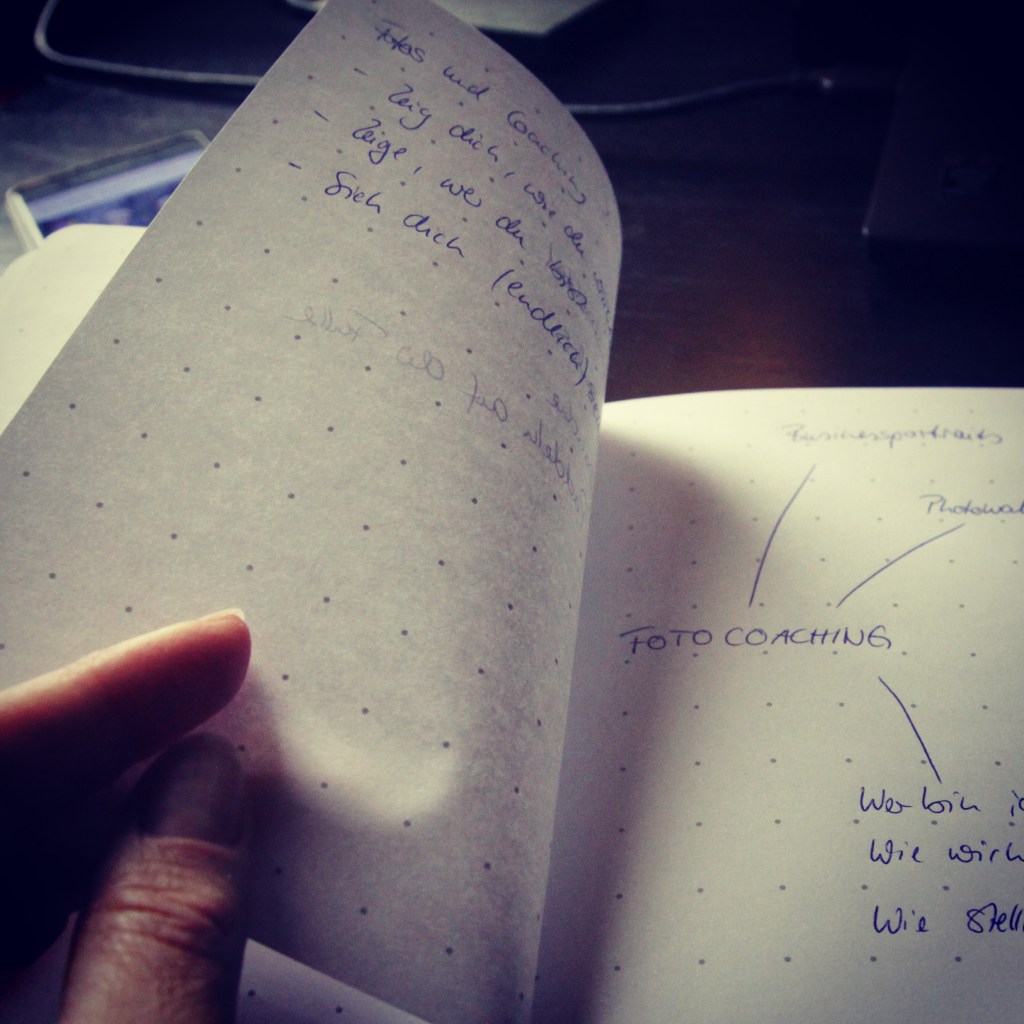 Fotos und Coaching
- Zeig dich, wie du
- Zeige, wer du bist
- Sieh dich (endlich)
Businessportraits
Photowal
FOTOCOACHING
Wer bin ic
Wie wirk
Wie stell